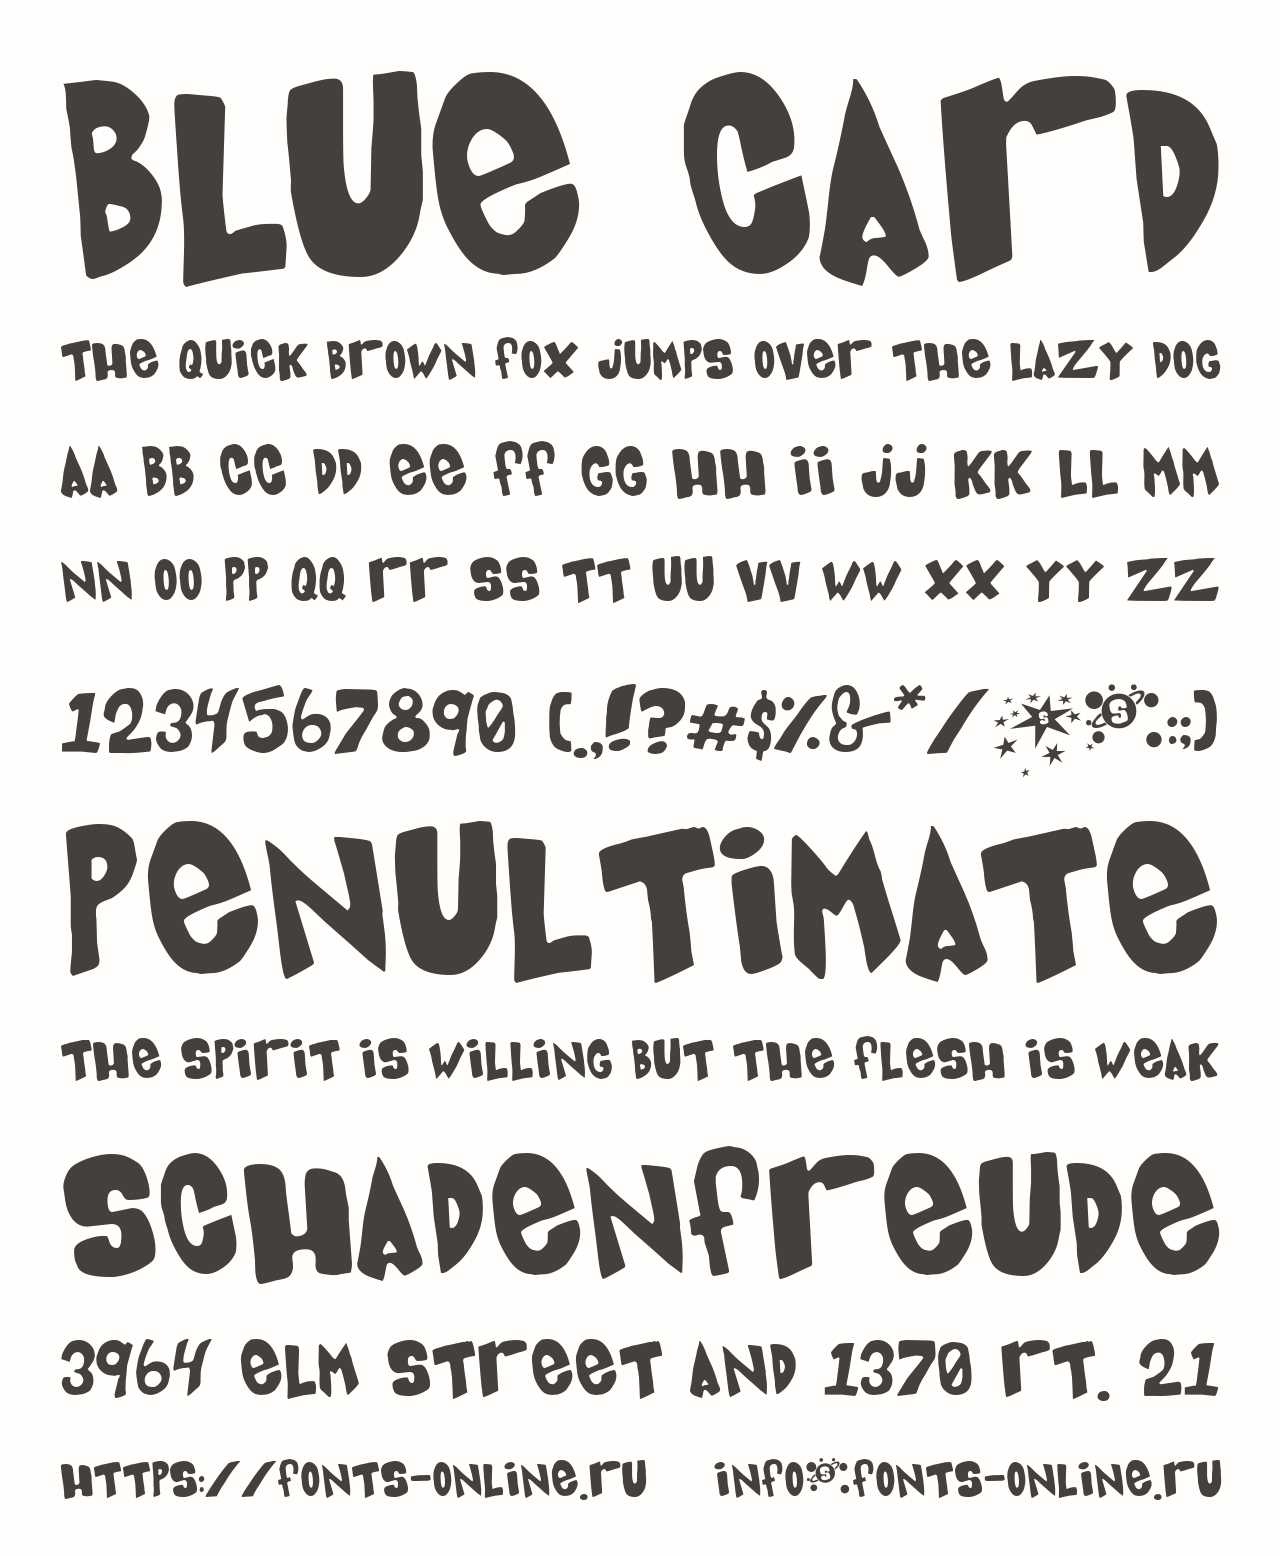 BLUe CArD
THe QUiCK BrOWN fOX jUMPS OVer THe LAZY DOG
AA BB CC DD ee ff GG HH ii jj KK LL MM
NN OO PP QQ rr SS TT UU VV WW XX YY ZZ
1234567890 (.,!?#$%&*/:;)
PeNULTiMATe
THe SPiriT iS WiLLiNG BUT THe fLeSH iS WeAK
SCHADeNfreUDe
3964 eLM STreeT AND 1370 rT. 21
HTTPS://fONTS-ONLiNe.rU iNfO@fONTS-ONLiNe.rU